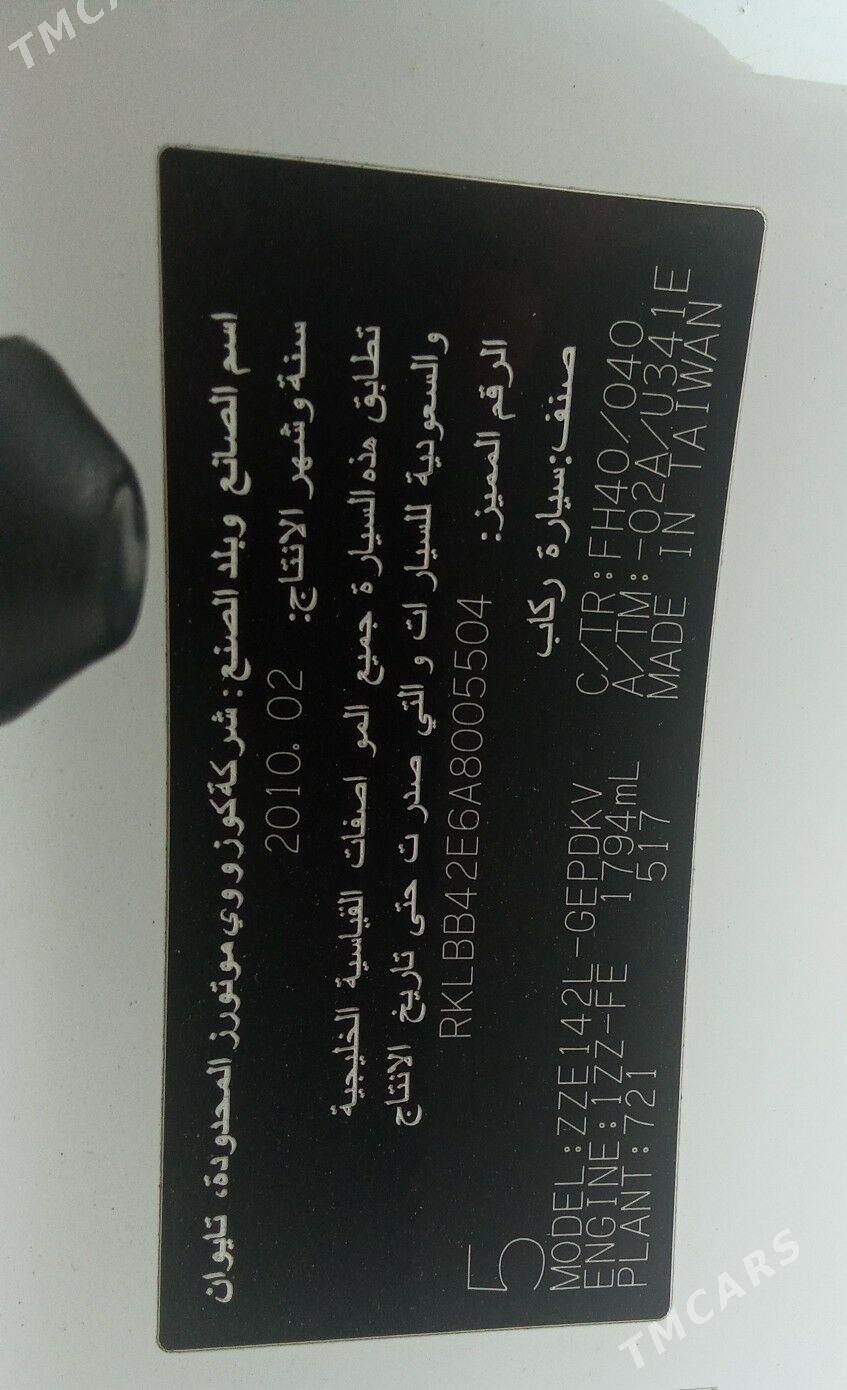 TMCA
اسم الصانع وبلد الصنع: شركة كوزووي موتورز المحدودة، تايوان
سنة وشهر الانتاج: 2010. 02
تطابق هذه السيارة جميع المواصفات القياسية الخليجية
والسعودية للسيارات والتي صدرت حتى تاريخ الانتاج
الرقم المميز: RKLBB42E6A8005504
صنف: سيارة ركاب
5
MODEL:ZZE142L-GEPDKV C/TR:FH40/040
ENGINE:1ZZ-FE 1794mL A/TM:-02A/U341E
PLANT:721 517 MADE IN TAIWAN
TMCARS